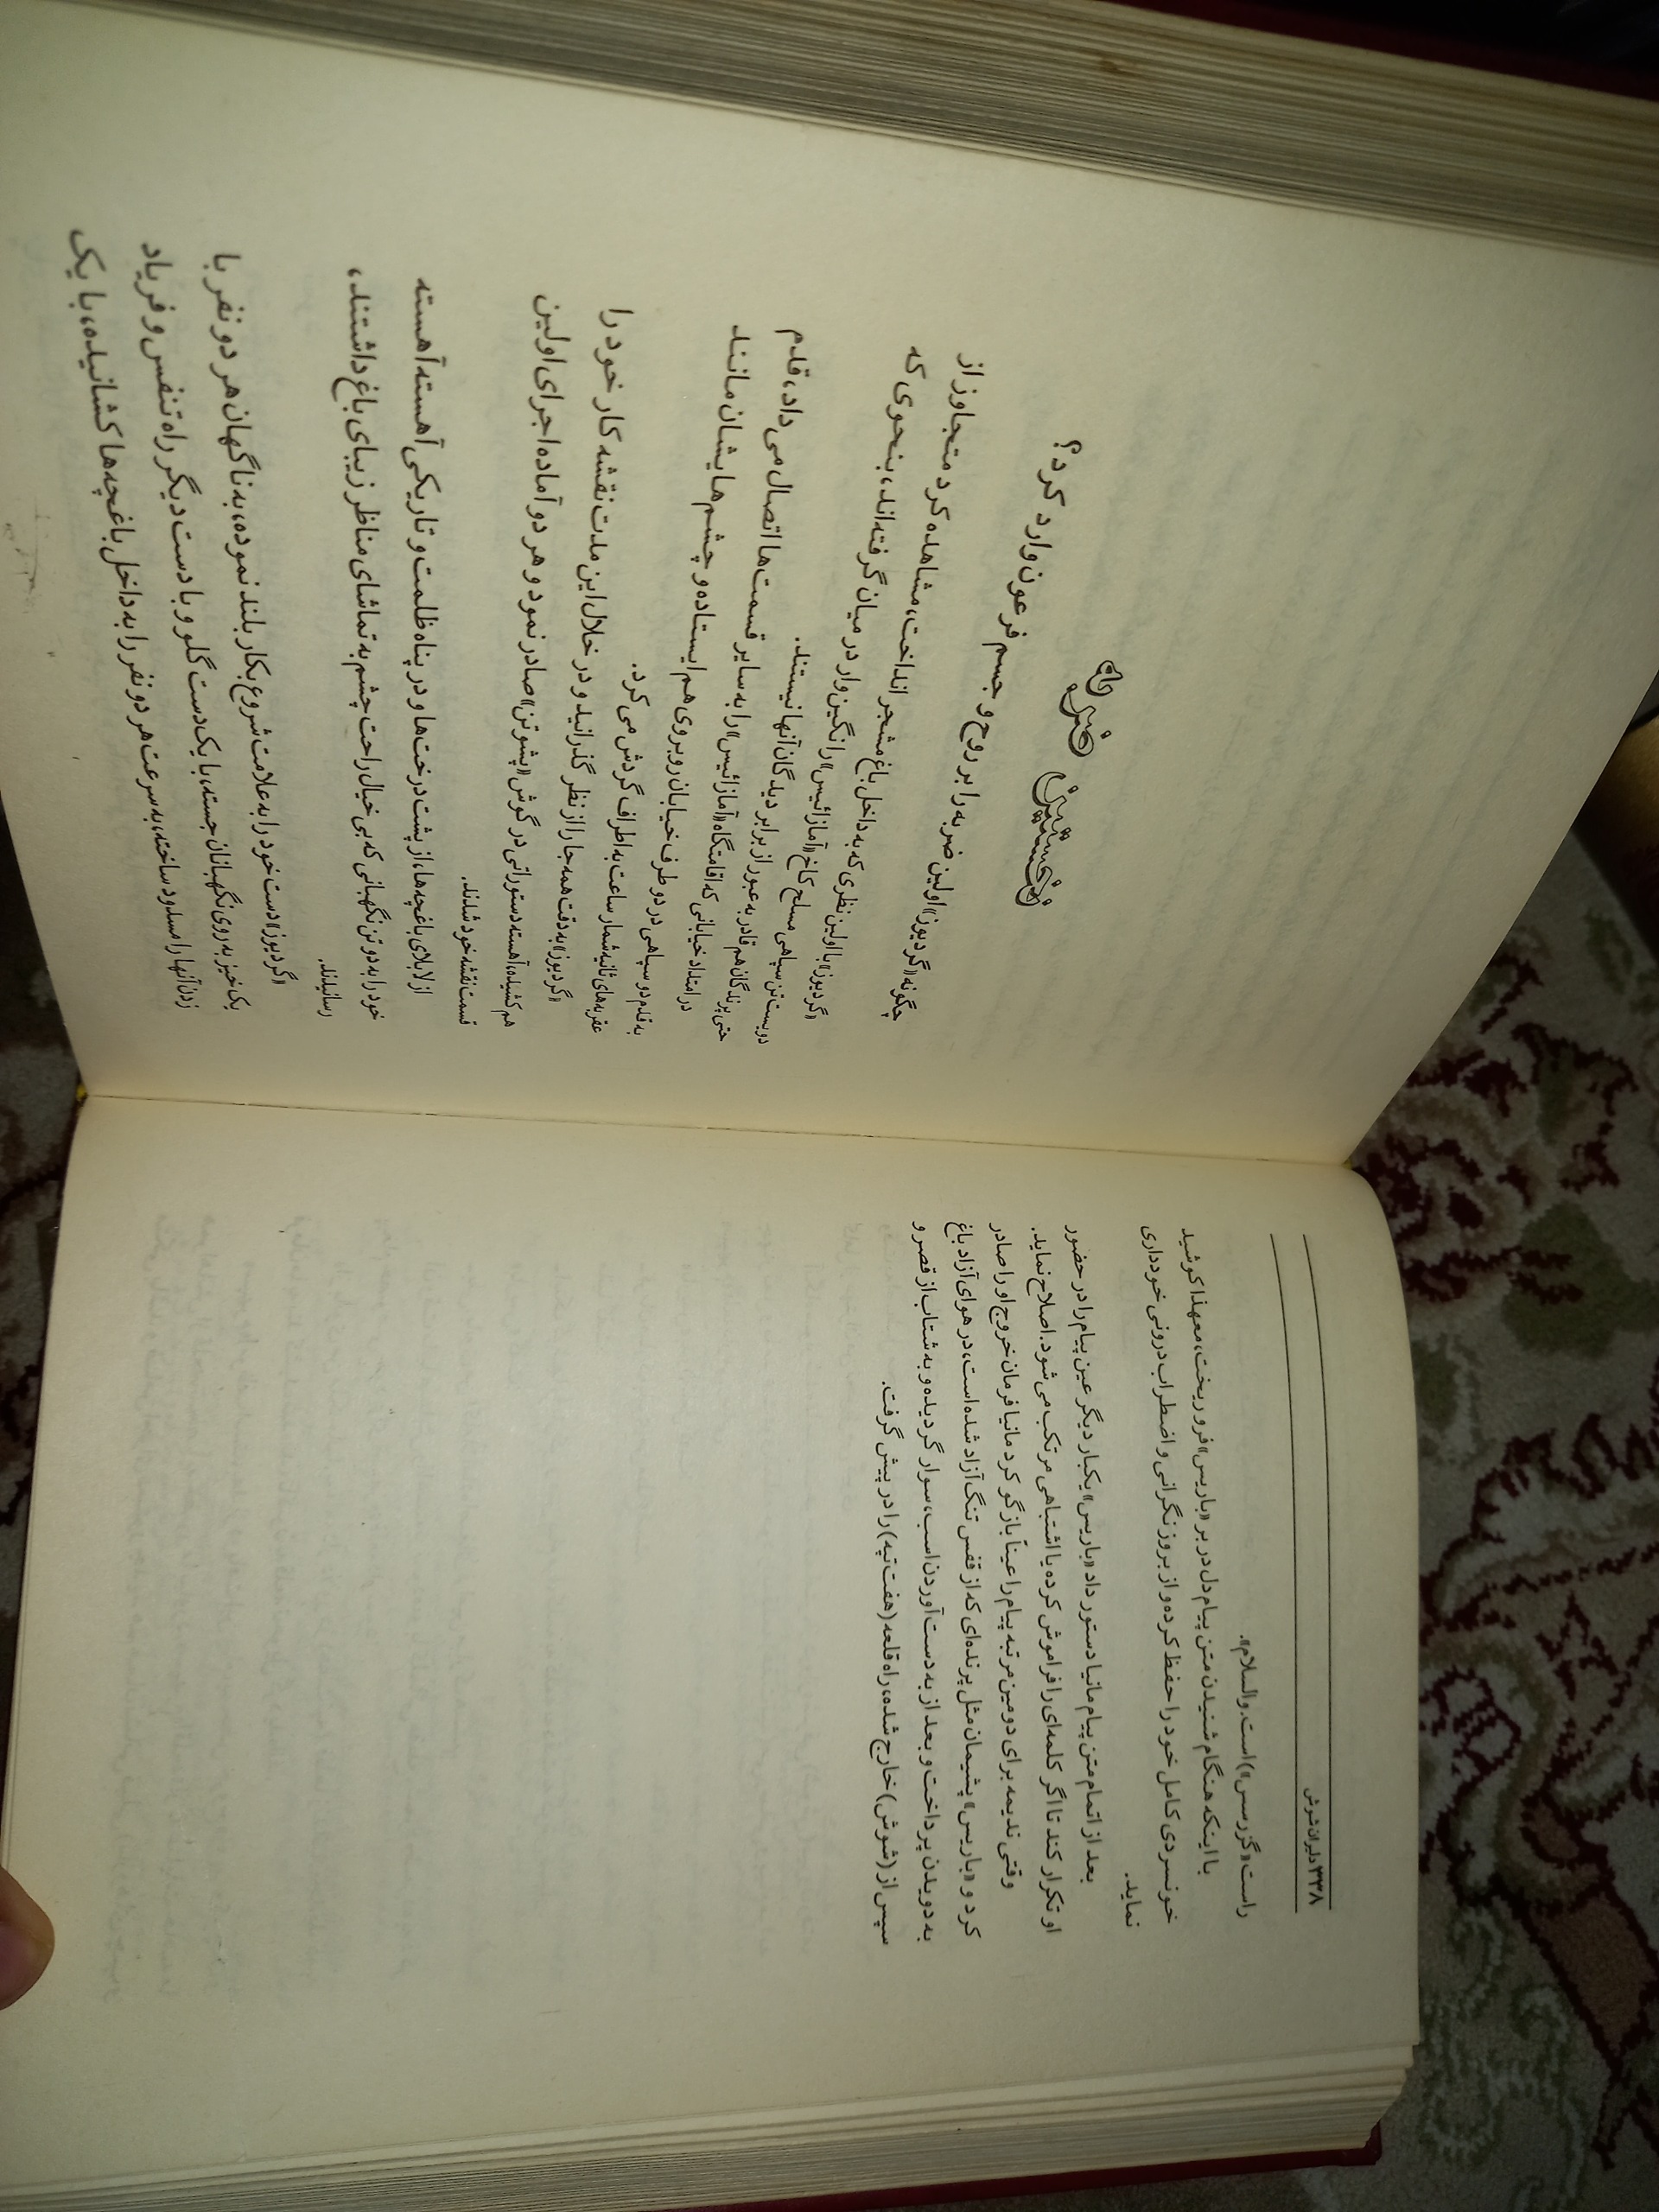 ۳۳۸ دلیران شوش
راست «گزرسس») است. والسلام».
با اینکه هنگام شنیدن متن پیام دل در بر «باریس» فرو ریخت، معهذا کوشید
خونسردی کامل خود را حفظ کرده و از بروز نگرانی و اضطراب درونی خودداری
نماید.
بعد از اتمام متن پیام مانیا دستور داد «باریس» یکبار دیگر عین پیام را در حضور
او تکرار کند تا اگر کلمه‌ای را فراموش کرده یا اشتباهی مرتکب می‌شود. اصلاح نماید.
وقتی ندیمه برای دومین مرتبه پیام را عیناً بازگو کرد مانیا فرمان خروج او را صادر
کرد و «باریس» پشیمان مثل پرنده‌ای که از قفس تنگ آزاد شده است، در هوای آزاد باغ
به دویدن پرداخت و بعد از به دست آوردن اسب، سوار گردیده و به شتاب از قصر و
سپس از (شوش) خارج شده، راه قلعه (هفت تپه) را در پیش گرفت.
نخستین ضربه
چگونه «گردیوز» اولین ضربه را بر روح و جسم فرعون وارد کرد؟
«گردیوز» با اولین نظری که به داخل باغ مشجر انداخت، مشاهده کرد متجاوز از
دویست تن سپاهی مسلح کاخ «آمازائیس» را نگین‌وار در میان گرفته‌اند، بنحوی که
حتی پرندگان هم قادر به عبور از برابر دیدگان آنها نیستند.
در امتداد خیابانی که اقامتگاه «آمازائیس» را به سایر قسمت‌ها اتصال می‌داد، قدم
به قدم دو سپاهی در دو طرف خیابان روبروی هم ایستاده و چشم‌هایشان مانند
عقربه‌های ثانیه‌شمار ساعت به اطراف گردش می‌کرد.
«گردیوز» به دقت همه جا را از نظر گذرانید و در خلال این مدت نقشه کار خود را
هم کشیده، آهسته دستوراتی در گوش «پشوتن» صادر نمود و هر دو آماده اجرای اولین
قسمت نقشه خود شدند.
از لابلای باغچه‌ها، از پشت درخت‌ها و در پناه ظلمت و تاریکی آهسته آهسته
خود را به دو تن نگهبانی که بی‌خیال راحت چشم به تماشای مناظر زیبای باغ داشتند،
رسانیدند.
«گردیوز» دست خود را به علامت شروع بکار بلند نموده، به ناگهان هر دو نفر با
یک خیز به روی نگهبانان جسته، با یک دست گلو و با دست دیگر راه تنفس و فریاد
زدن آنها را مسدود ساخته، به سرعت هر دو نفر را به داخل باغچه‌ها کشانیده، با یک